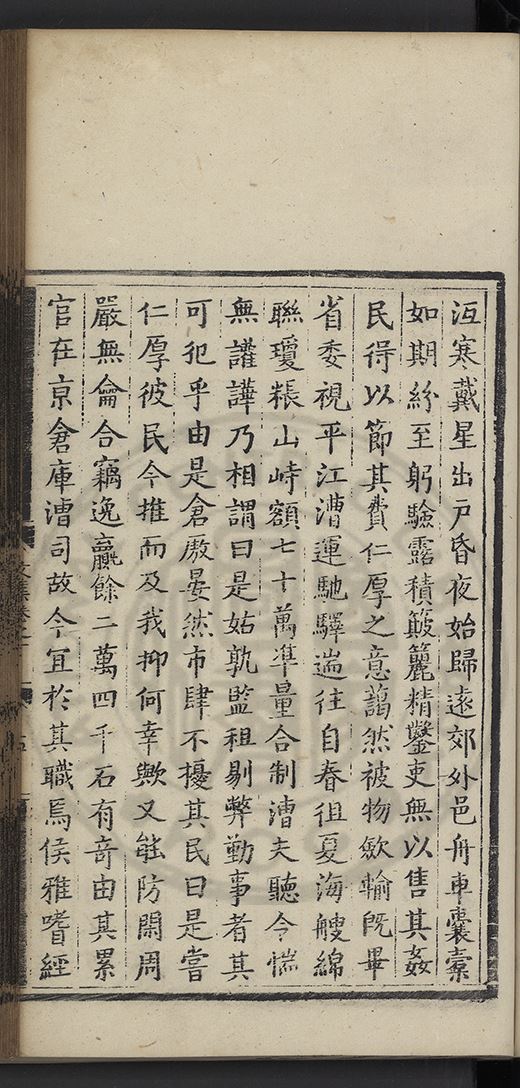 沍寒戴星出戸昏夜始歸遠郊外邑舟車囊橐
如期紛至躬驗露積簸籭精鑿吏無以售其姦
民得以節其費仁厚之意藹然被物斂輸既畢
省委視平江漕運馳驛遄往自春徂夏海艘綿
聯瓊粻山峙額七十萬準量合制漕夫聽令惴
無讙譁乃相謂曰是姑孰監租剔弊勤事者其
可犯乎由是倉廒晏然市肆不擾其民曰是嘗
仁厚彼民今推而及我抑何幸歟又能防閑周
嚴無龠合竊逸羸餘二萬四千石有奇由其累
官在京倉庫漕司故今宜於其職焉侯雅嗜經